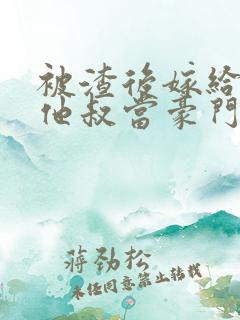 被渣後嫁給
他叔當豪門
蔣勁松
未经同意禁止转载